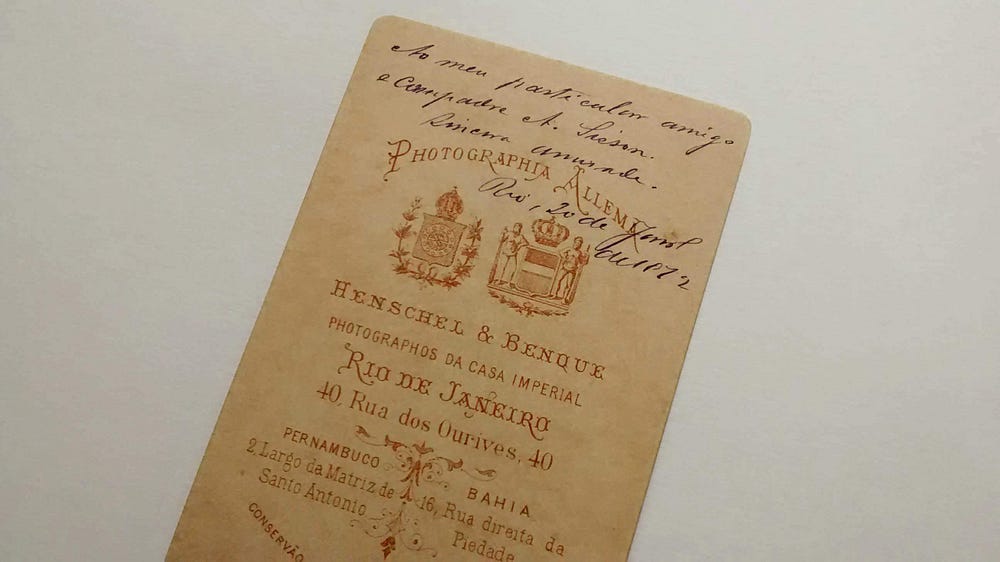 Ao meu particular amigo
e Compadre A. Sisson.
Sincera amizade.
Rio, 20 de
de 1872
PHOTOGRAPHIA ALLEMÃ
HENSCHEL & BENQUE
PHOTOGRAPHOS DA CASA IMPERIAL
RIO DE JANEIRO
40, Rua dos Ourives, 40
PERNAMBUCO
2, Largo da Matriz de
Santo Antonio
BAHIA
16, Rua direita da
Piedade
CONSERVÃO